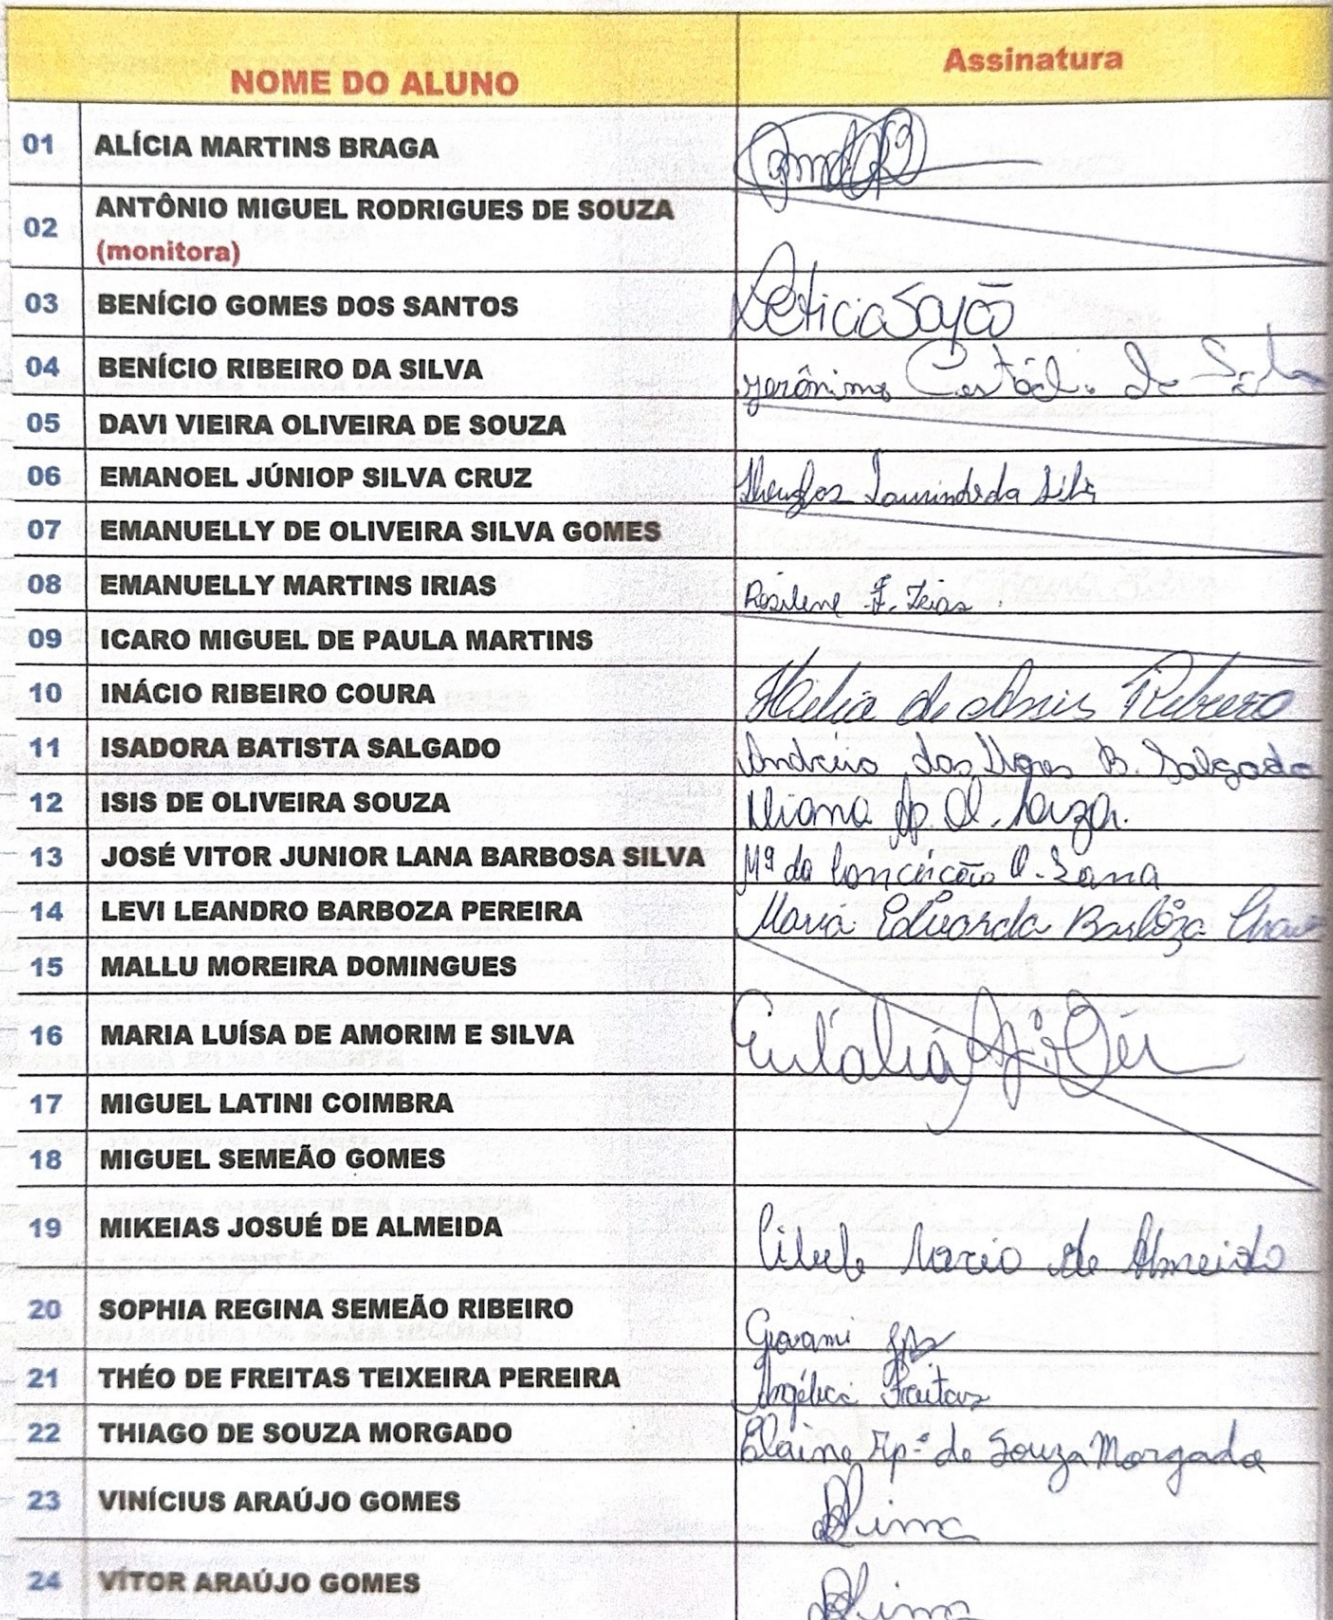 NOME DO ALUNO Assinatura
01 ALÍCIA MARTINS BRAGA
02 ANTÔNIO MIGUEL RODRIGUES DE SOUZA
(monitora)
03 BENÍCIO GOMES DOS SANTOS Leticia Sayão
04 BENÍCIO RIBEIRO DA SILVA Jerônimo Custódio da
05 DAVI VIEIRA OLIVEIRA DE SOUZA
06 EMANOEL JÚNIOP SILVA CRUZ
07 EMANUELLY DE OLIVEIRA SILVA GOMES
08 EMANUELLY MARTINS IRIAS Rosilene F. Irias
09 ICARO MIGUEL DE PAULA MARTINS
10 INÁCIO RIBEIRO COURA de Assis Ribeiro
11 ISADORA BATISTA SALGADO B. Salgado
12 ISIS DE OLIVEIRA SOUZA Ap. O. Souza
13 JOSÉ VITOR JUNIOR LANA BARBOSA SILVA Mª da Conceição O. Lana
14 LEVI LEANDRO BARBOZA PEREIRA Maria Eduarda Barbôza
15 MALLU MOREIRA DOMINGUES
16 MARIA LUÍSA DE AMORIM E SILVA Eulália
17 MIGUEL LATINI COIMBRA
18 MIGUEL SEMEÃO GOMES
19 MIKEIAS JOSUÉ DE ALMEIDA de Almeida
20 SOPHIA REGINA SEMEÃO RIBEIRO Giovami
21 THÉO DE FREITAS TEIXEIRA PEREIRA Angélica Freitas
22 THIAGO DE SOUZA MORGADO Elaine Ap.ª de Souza Morgado
23 VINÍCIUS ARAÚJO GOMES
24 VÍTOR ARAÚJO GOMES